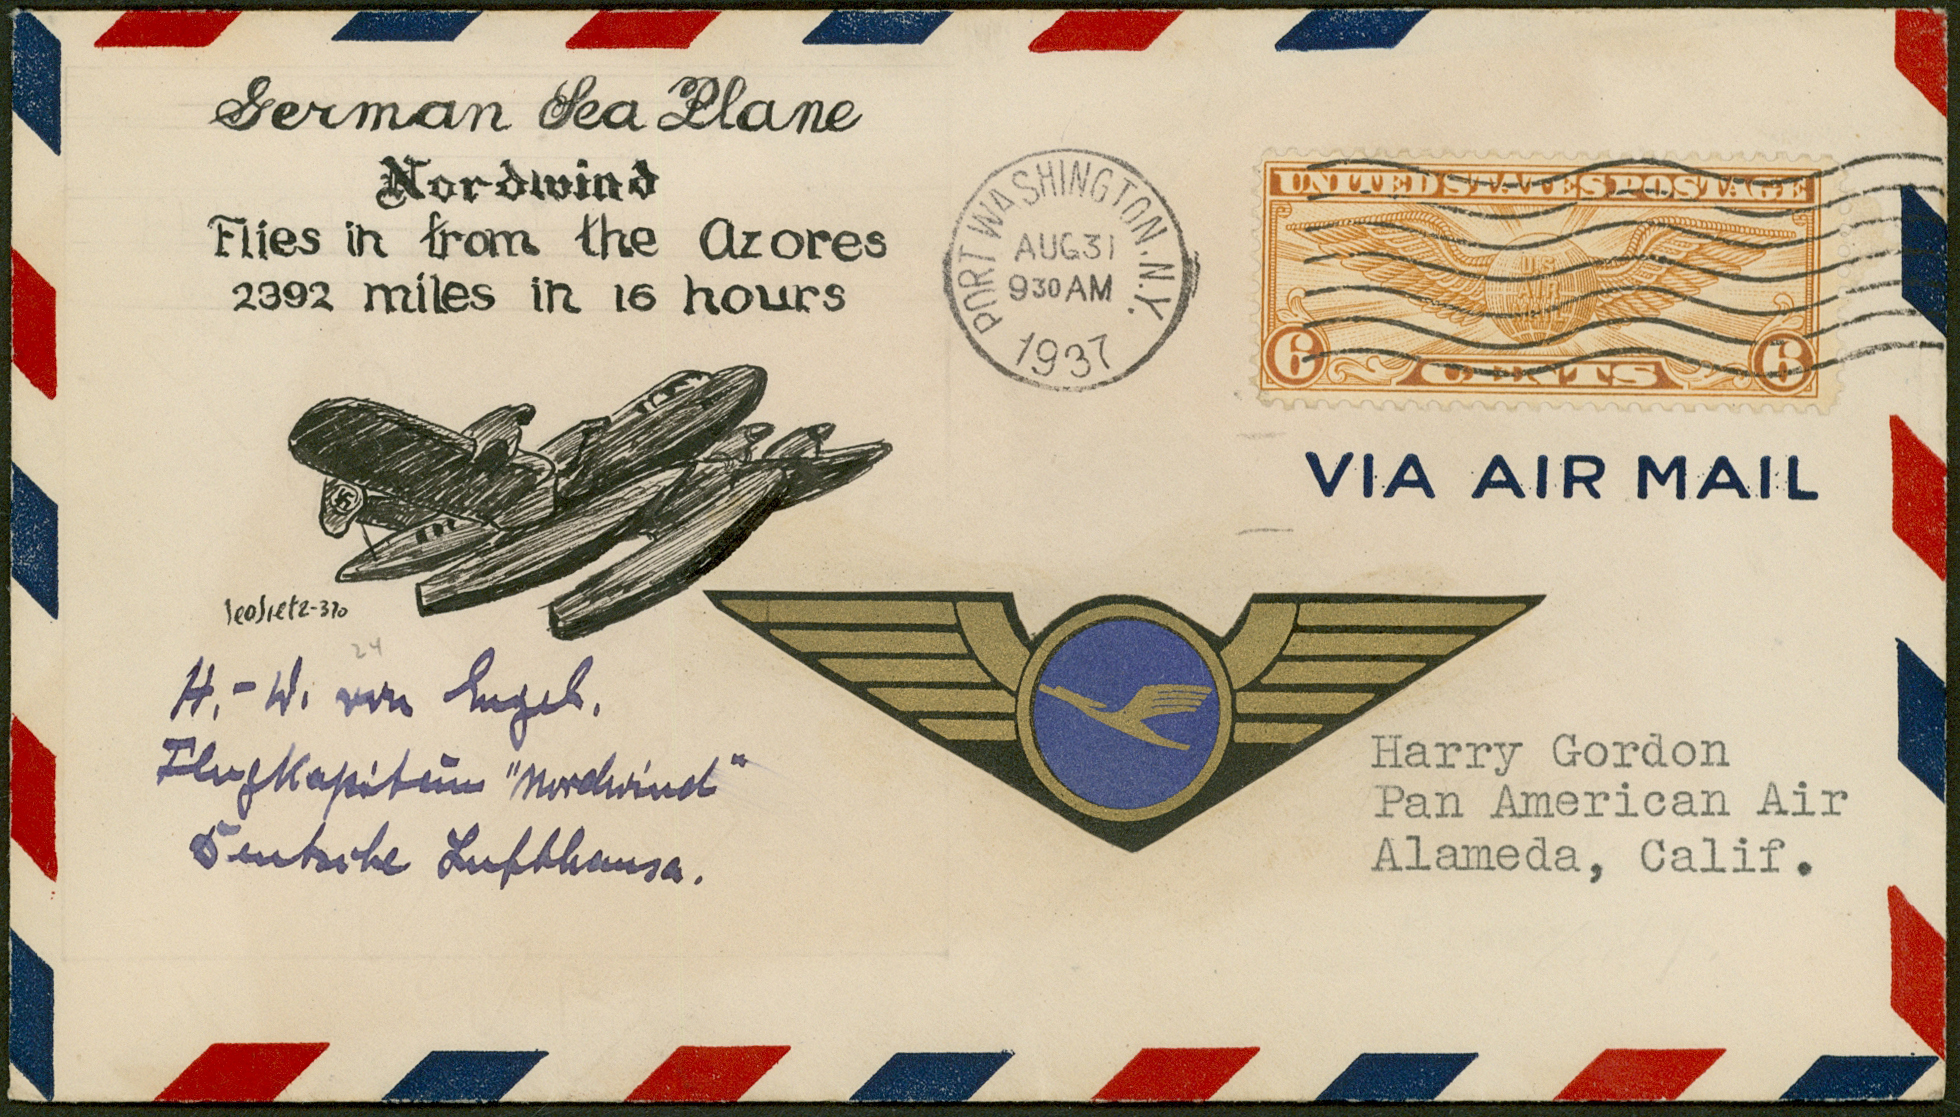 German Sea Plane
Nordwind
Flies in from the Azores
2392 miles in 16 hours
PORT WASHINGTON, N.Y.
AUG 31
930 AM
1937
UNITED STATES POSTAGE
US
AIR
MAIL
6 CENTS 6
VIA AIR MAIL
24
H.-W. von Engel.
Flugkapitän "Nordwind"
Deutsche Lufthansa.
Harry Gordon
Pan American Air
Alameda, Calif.